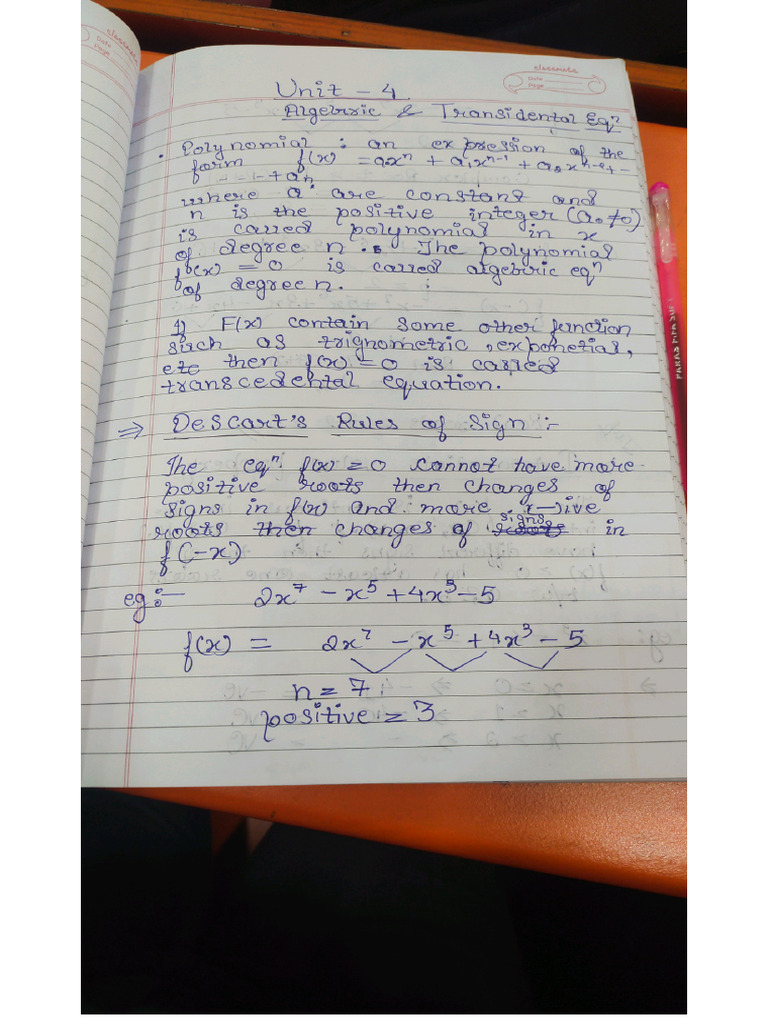 classmate
Date
Page
Unit - 4
Algebric & Transidental Eqⁿ
• Polynomial : an expression of the
form f(x) = a₀xⁿ + a₁xⁿ⁻¹ + a₂xⁿ⁻² + -
- - - + aₙ
where a. are constant and
n is the positive integer (a₀≠0)
is carred polynomial in x
of degree n. The polynomial
f(x) = 0 is carred algebric eqⁿ
of degree n.
F(x) contain some other function
such as trignometric, exponetial,
etc then f(x) = 0 is carred
transcedental equation.
⇒ Descart's Rules of Sign :-
The eqⁿ f(x) = 0 cannot have more
positive roots then changes of
signs in f(x) and more (-)ive
roots then changes of signs in
f(-x)
eg:- 2x⁷ - x⁵ + 4x³ - 5
f(x) = 2x⁷ - x⁵ + 4x³ - 5
n = 7
positive = 3